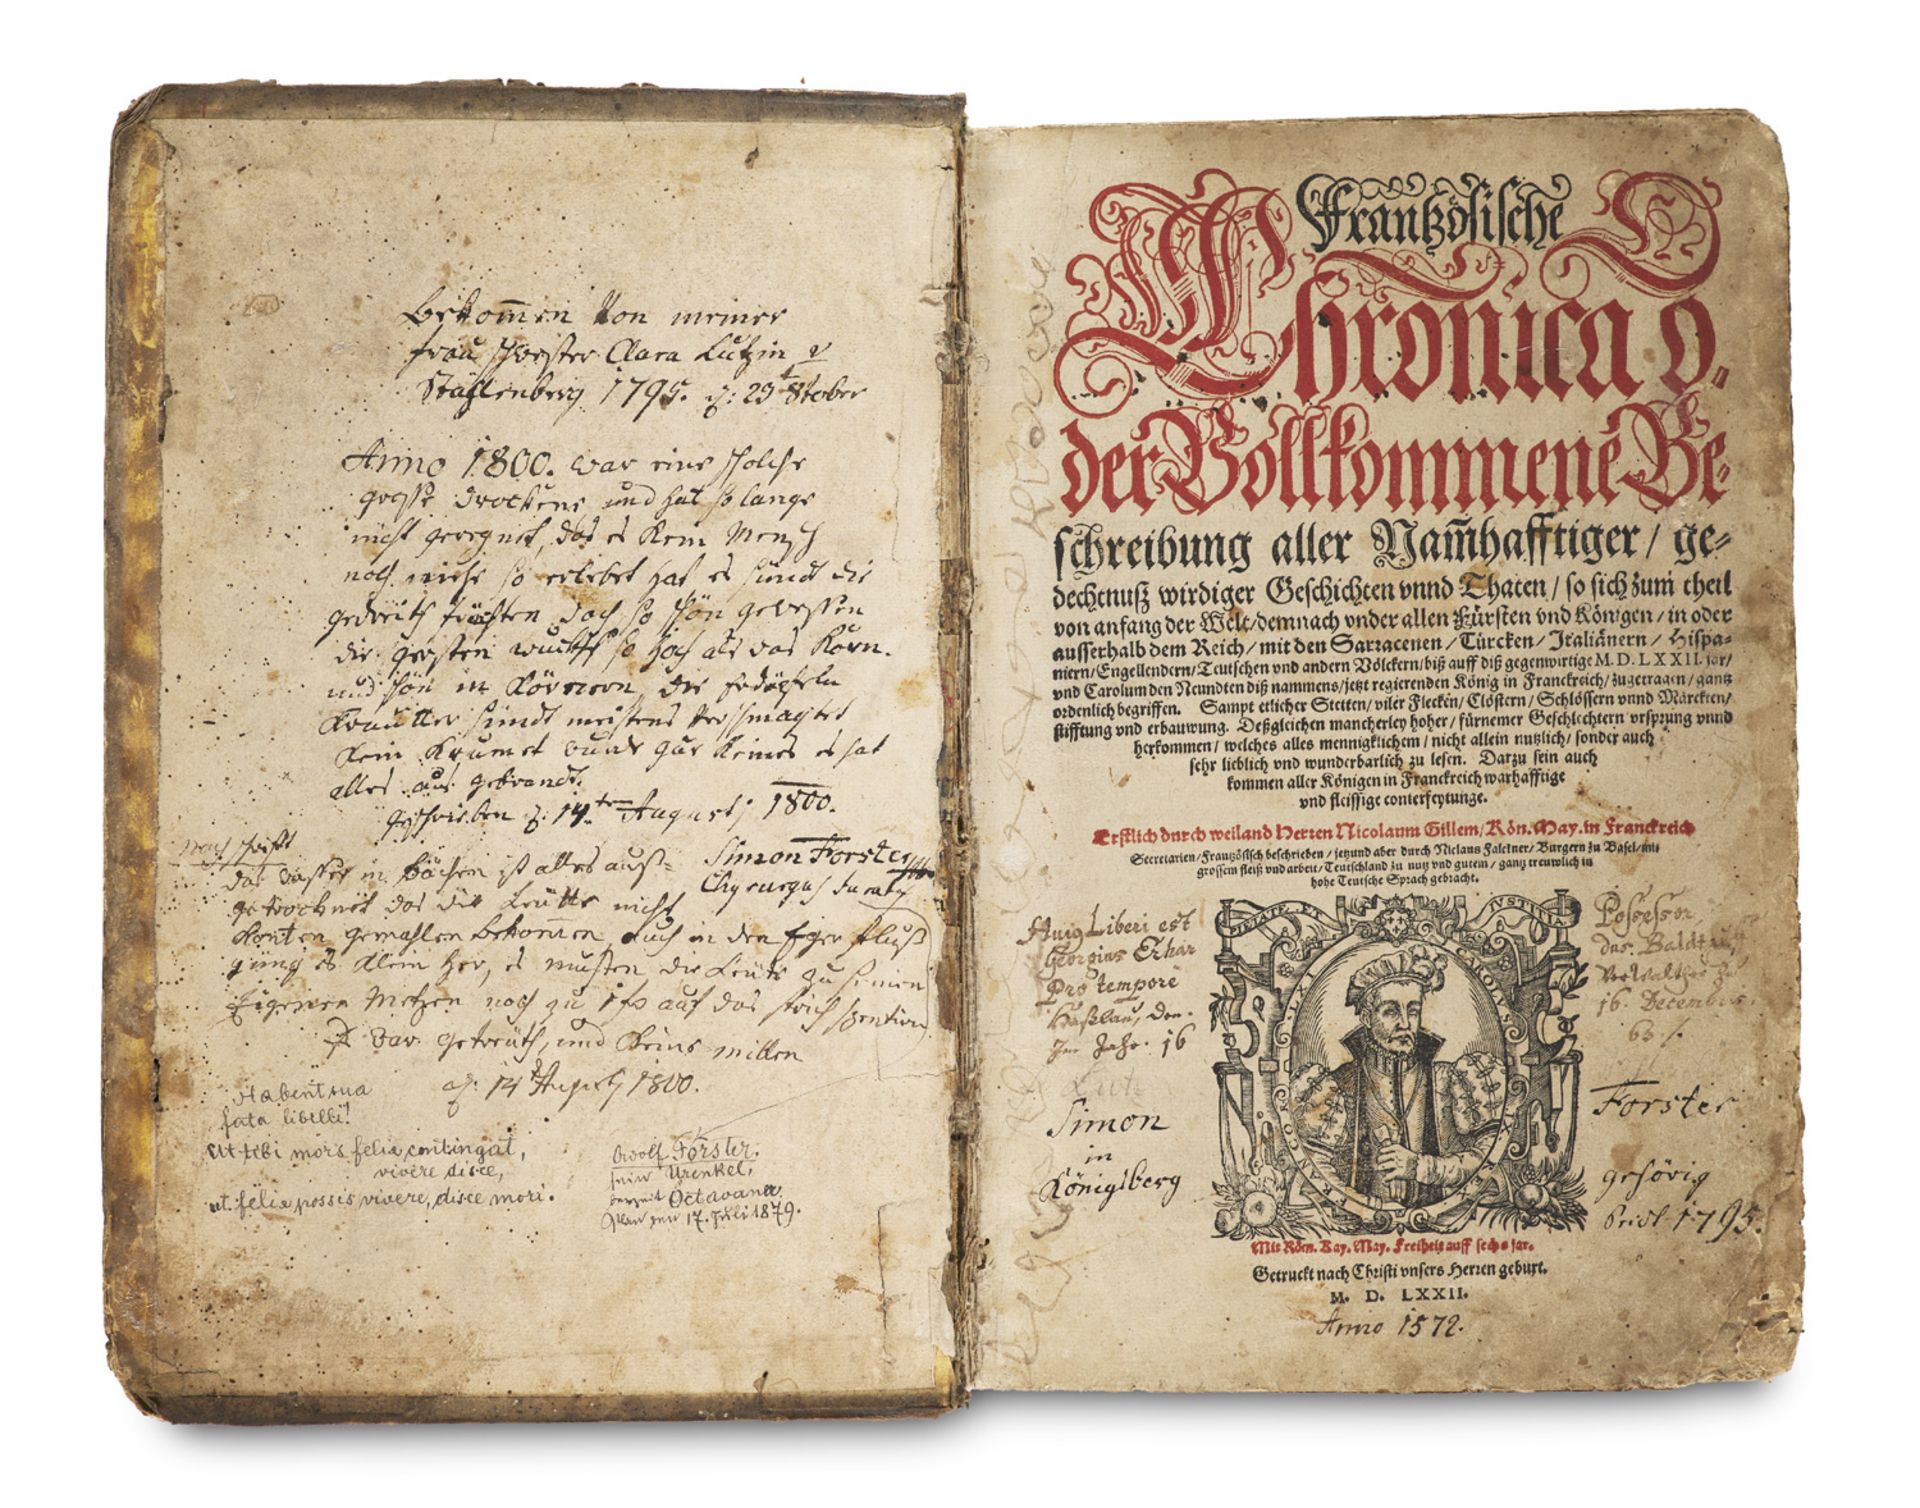 Bekom̄en Von meiner
frau schwester Clara Lutzin
1795. d: 29t 8tober
Anno 1800. war eine solche
grosse drockene und hat so lange
nicht geregnet, das es Kein Mensch
noch niehe so erlebet hat es sindt die
gedreith früchten doch so schön gewessen
die gersten wuchss so hoch als das Korn.
und schön in Körnern, die Erdäpfeln
Krautter sindt meistens verschmagtet
Kein Krumet wurde gar Keines es hat
alles aus gebrandt.
geschrieben d: 14ten Augusti 1800.
Nach schrifft
Simon Forster
Chyrurgus
das wasser in Bächen ist alles auß=
getrocknet das die Leutte nicht
Konten gemahlen bekom̄en, auch in den Eger fluß
ging es Klein her, es musten die Leute zu
Metzen noch zu auf das
war getreuth, und Keine mittlen
d: 14 Augusti 1800.
Habent sua
fata libelli!
Ut tibi mors felix contingat,
vivere disce,
ut felix possis vivere, disce mori.
Adolf Forster.
sein Urenkel,
derzeit Octavaner
Plan den 17. Juli 1879.
Frantzösische
Chronica o-
der Vollkommene Be-
schreibung aller Nam̄hafftiger / ge-
dechtnuß wirdiger Geschichten vnnd Thaten / so sich zum theil
von anfang der Welt / demnach vnder allen Fürsten vnd Königen / in oder
ausserhalb dem Reich / mit den Sarracenen / Türcken / Italiänern / Hispa-
niern / Engellendern / Teutschen vnd andern Völckern / biß auff diß gegenwirtige M. D. LXXII. jar /
vnd Carolum den Neundten diß nammens / jetzt regierenden König in Franckreich / zugetragen / gantz
ordenlich begriffen. Sampt etlicher Stetten / viler Flecken / Clöstern / Schlössern vnnd Märckten /
stifftung vnd erbauwung. Deßgleichen mancherley hoher / fürnemer Geschlechtern vrsprung vnnd
herkommen / welches alles mennigklichem / nicht allein nutzlich / sonder auch
sehr lieblich vnd wunderbarlich zu lesen. Darzu sein auch
kommen aller Königen in Franckreich warhafftige
vnd fleissige conterfeytunge.
Erstlich durch weiland Herren Nicolaum Gillem / Kön. May. in Franckreich
Secretarien / Frantzösisch beschrieben / jetzund aber durch Niclaus Falckner / Burgern zu Basel / mit
grossem fleiß vnd arbeit / Teutschland zu nutz vnd gutem / gantz treuwlich in
hohe Teutsche Sprach gebracht.
PIETATE ET IVSTITIA
CAROLVS IX REX FRANCOR
Huiq Liberi est
Georgius
Pro tempore
Haßlau, den.
Im Jahr. 16
Possessor
16. Decembris.
63
Simon
in
Königsberg
Forster
gehörig
1795.
Mit Röm. Kay. May. Freiheit auff sechs jar.
Getruckt nach Christi vnsers Herren geburt.
M. D. LXXII.
Anno 1572.